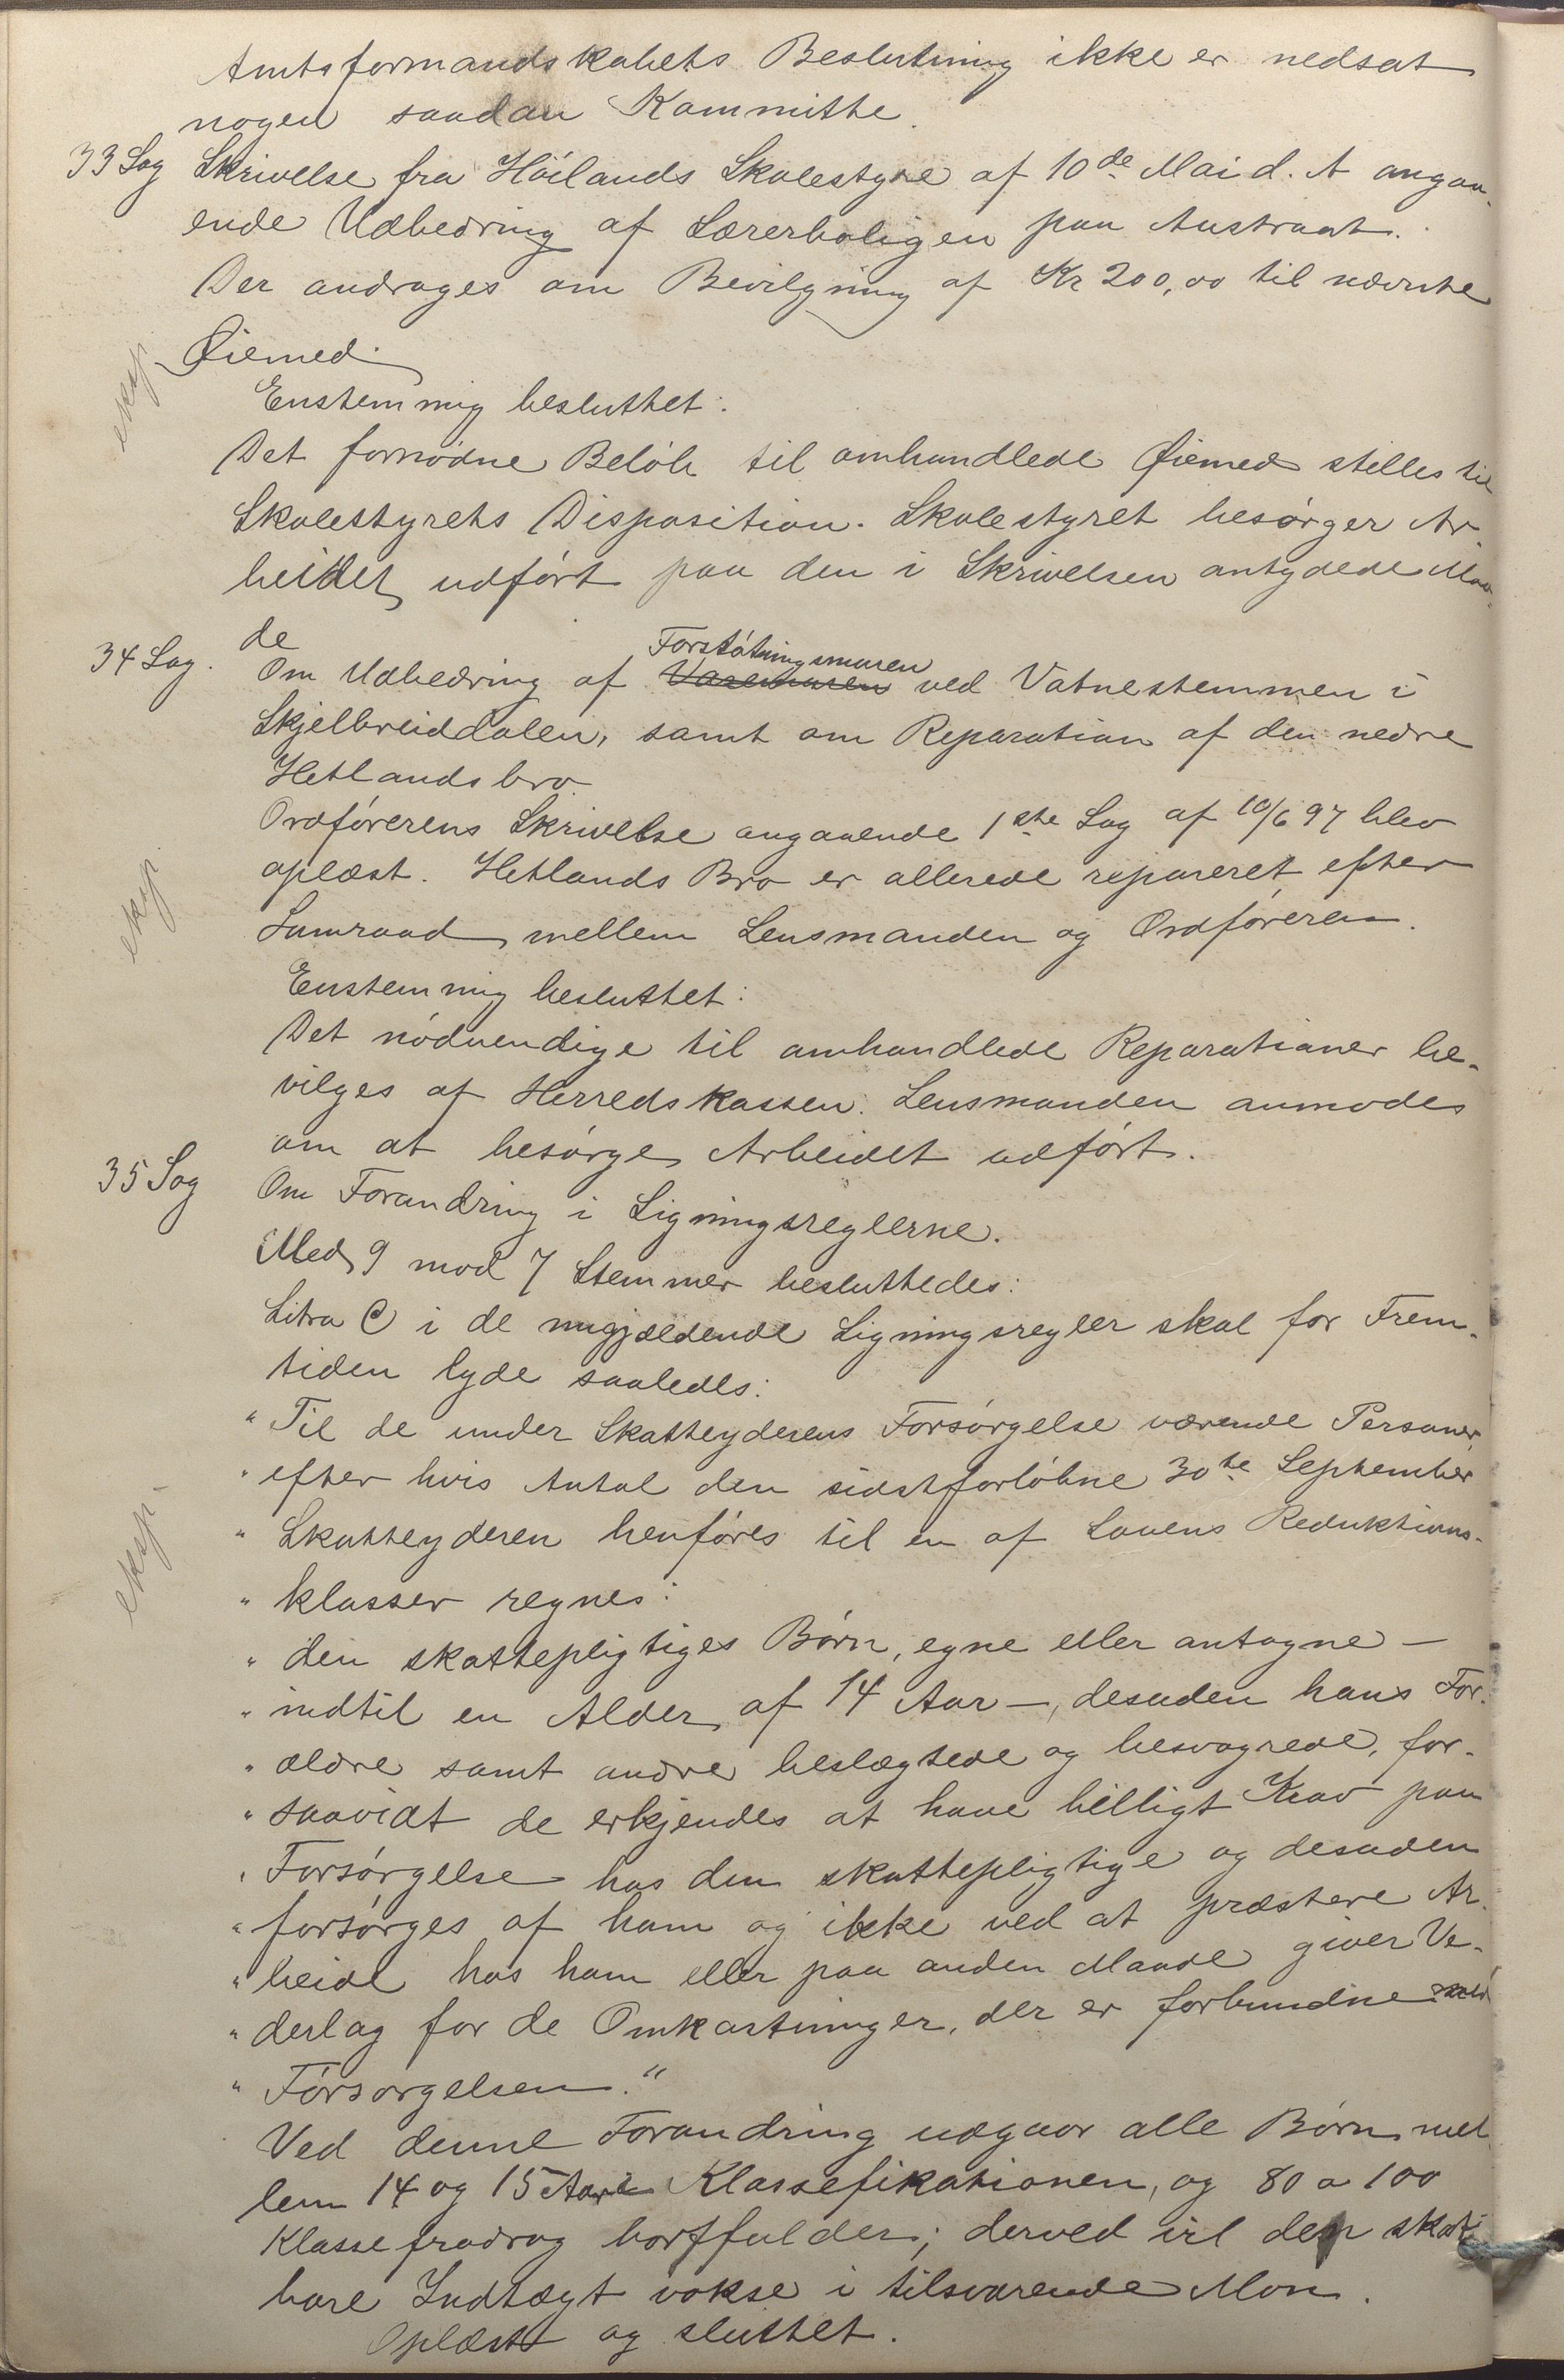 Amtsformandskabets Beslutning ikke er nedsat
nogen saadan Kommitte.
33 Sag Skrivelse fra Höilands Skolestyre af 10de Mai d. A angaa-
ende Udbedring af Lærerboligen paa Austraat.
Der andrages om Bevilgning af Kr 200,00 til nævnte
Øiemed.
eksp.
Enstemmig besluttet:
Det fornödne Belöb til omhandlede Øiemed stilles til
Skolestyrets Disposition. Skolestyret besörger Ar-
beidet udfört paa den i Skrivelsen antydede Maa-
de
34 Sag. Om Udbedring af Varemuren Forstötningsmuren ved Vatnestemmen i
Skjelbreiddalen, samt om Reparation af den nedre
Hetlandsbro.
Ordförerens Skrivelse angaaende 1ste Sag af 10/6 97 blev
oplæst. Hetlands Bro er allerede repareret efter
eksp.
Samraad mellem Lensmanden og Ordföreren.
Enstemmig besluttet:
Det nödvendige til omhandlede Reparationer be-
vilges af Herredskassen. Lensmanden anmodes
om at besörge Arbeidet udfört.
35 Sag Om Forandring i Ligningsreglerne.
Med 9 mod 7 Stemmer besluttedes:
Litra C i de nugjældende Ligningsregler skal for Frem-
tiden lyde saaledes:
" Til de under Skatteyderens Forsörgelse værende Personer,
" efter hvis Antal den sidstforlöbne 30te September
" Skatteyderen henföres til en af Lovens Reduktions-
eksp.
" klasser regnes:
" den skattepligtiges Börn, egne eller antagne -
" indtil en Alder af 14 Aar -, desuden hans For-
" ældre samt andre beslægtede og besvogrede, for-
" saavidt de erkjendes at have billigt Krav paa
" Forsörgelse hos den skattepligtige og desuden
" forsörges af ham og ikke ved at præstere Ar-
" beide hos ham eller paa anden Maade giver Ve-
" derlag for de Omkostninger, der er forbundne med
" Försorgelsen."
Ved denne Forandring udgaar alle Börn mel-
lem 14 og 15 Aar i Klassefikationen, og 80 a 100
Klassefradrag bortfalder; derved vil den skat-
bare Indtægt vokse i tilsvarende Mon.
Oplæst og sluttet.